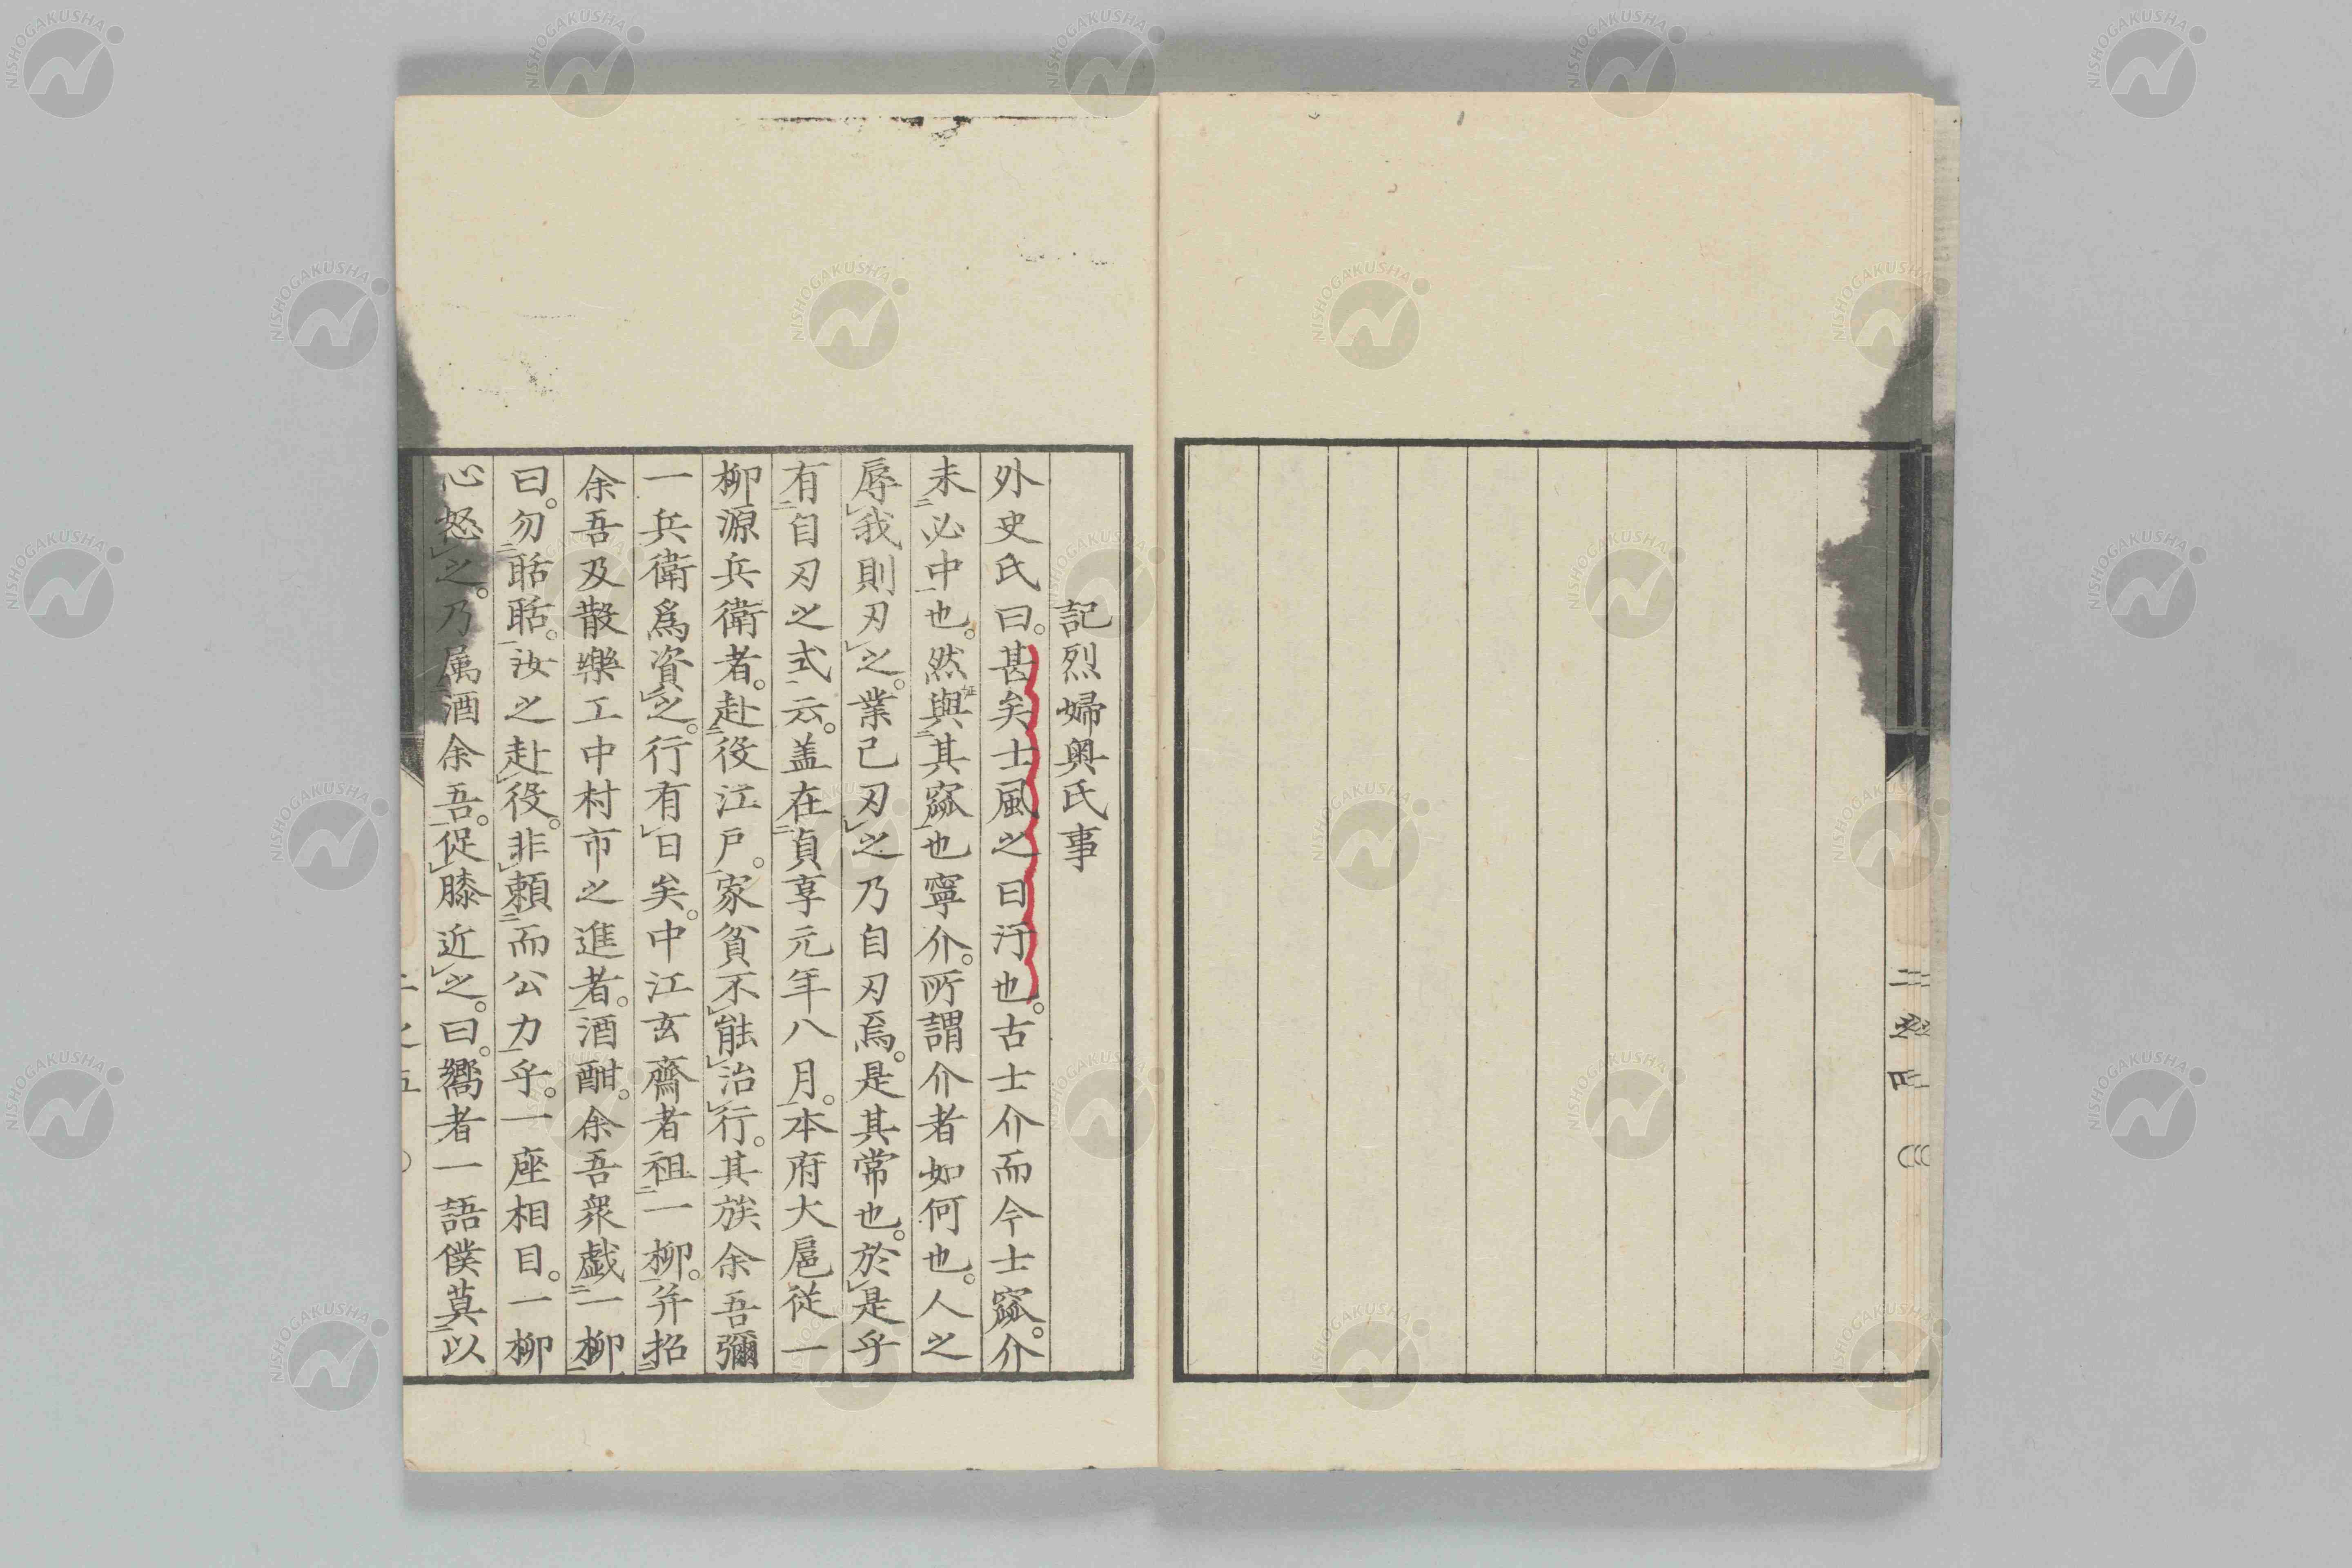 記烈婦奥氏事
外史氏曰。甚矣士風之日汙也。古士介而今士窳。介
未必中也。然與其窳也寧介。所謂介者如何也。人之
辱我則刃之。業已刃之乃自刃焉。是其常也。於是乎
有自刃之式云。盖在貞享元年八月。本府大扈従一
柳源兵衛者。赴役江戸。家貧不能治行。其族余吾彌
一兵衛爲資之。行有日矣。中江玄齋者祖一柳。并招
余吾及散樂工中村市之進者。酒酣。余吾衆戯一柳
曰。勿聒聒。汝之赴役。非頼而公力乎。一座相目。一柳
心怒之。乃属酒余吾。促膝近之。曰。嚮者一語僕莫以
NISHOGAKUSHA